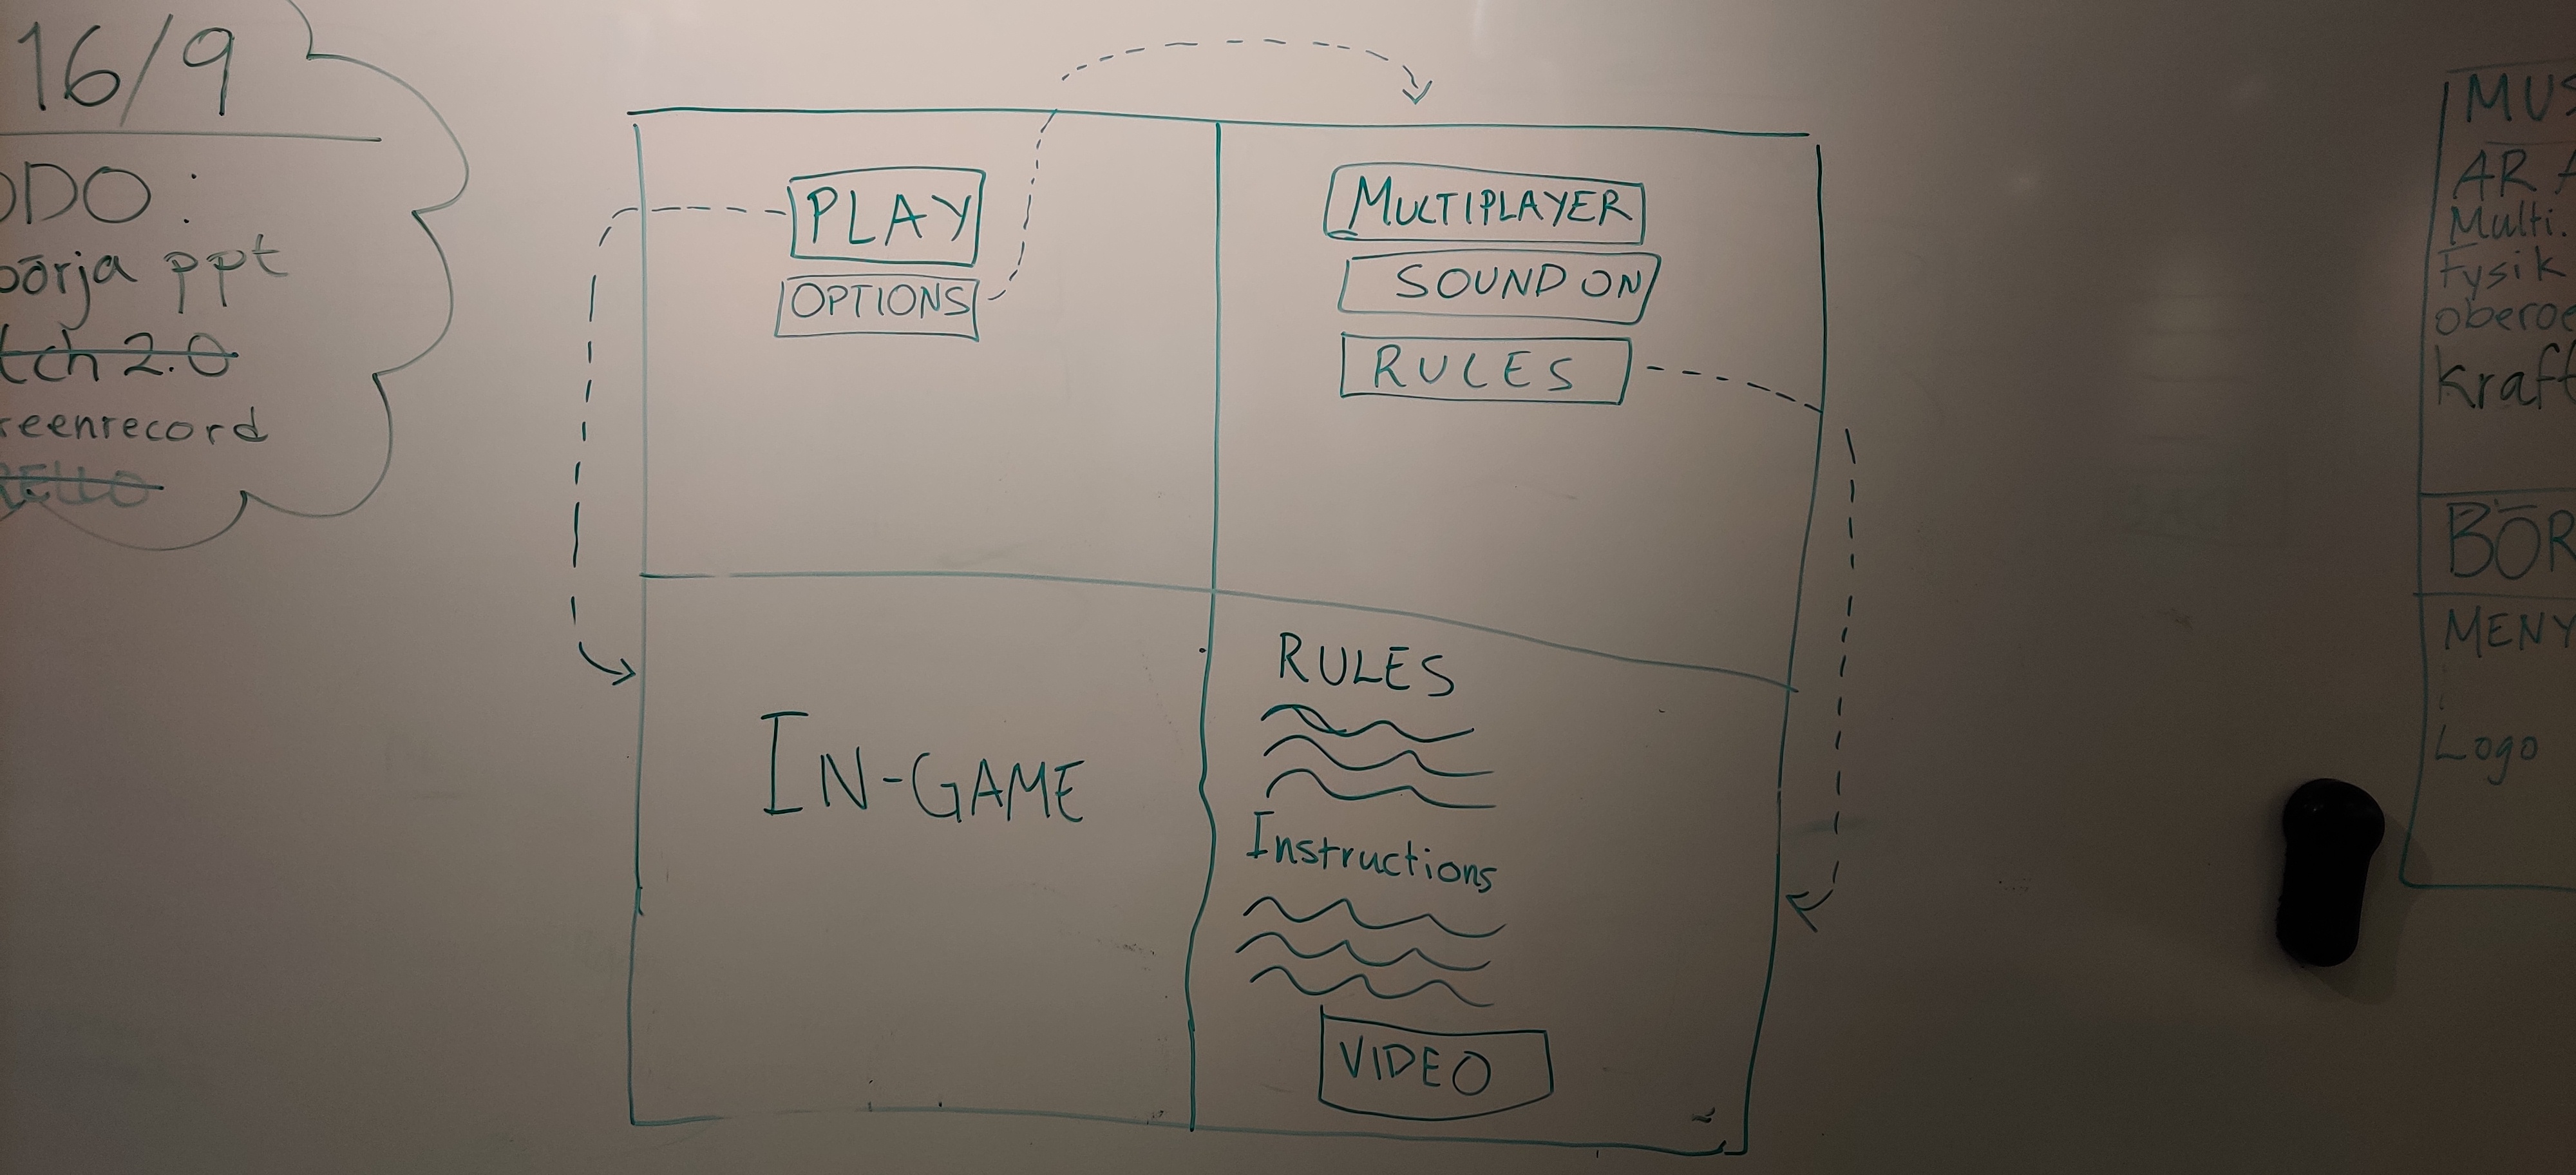 16/9
ODO:
börja ppt
tch 2.0
reenrecord
RELLO
PLAY
OPTIONS
MULTIPLAYER
SOUND ON
RULES
IN-GAME
RULES
Instructions
VIDEO
MUS
AR A
Multi.
Fysik
oberoe
kraft
BÖR
MENY
Logo